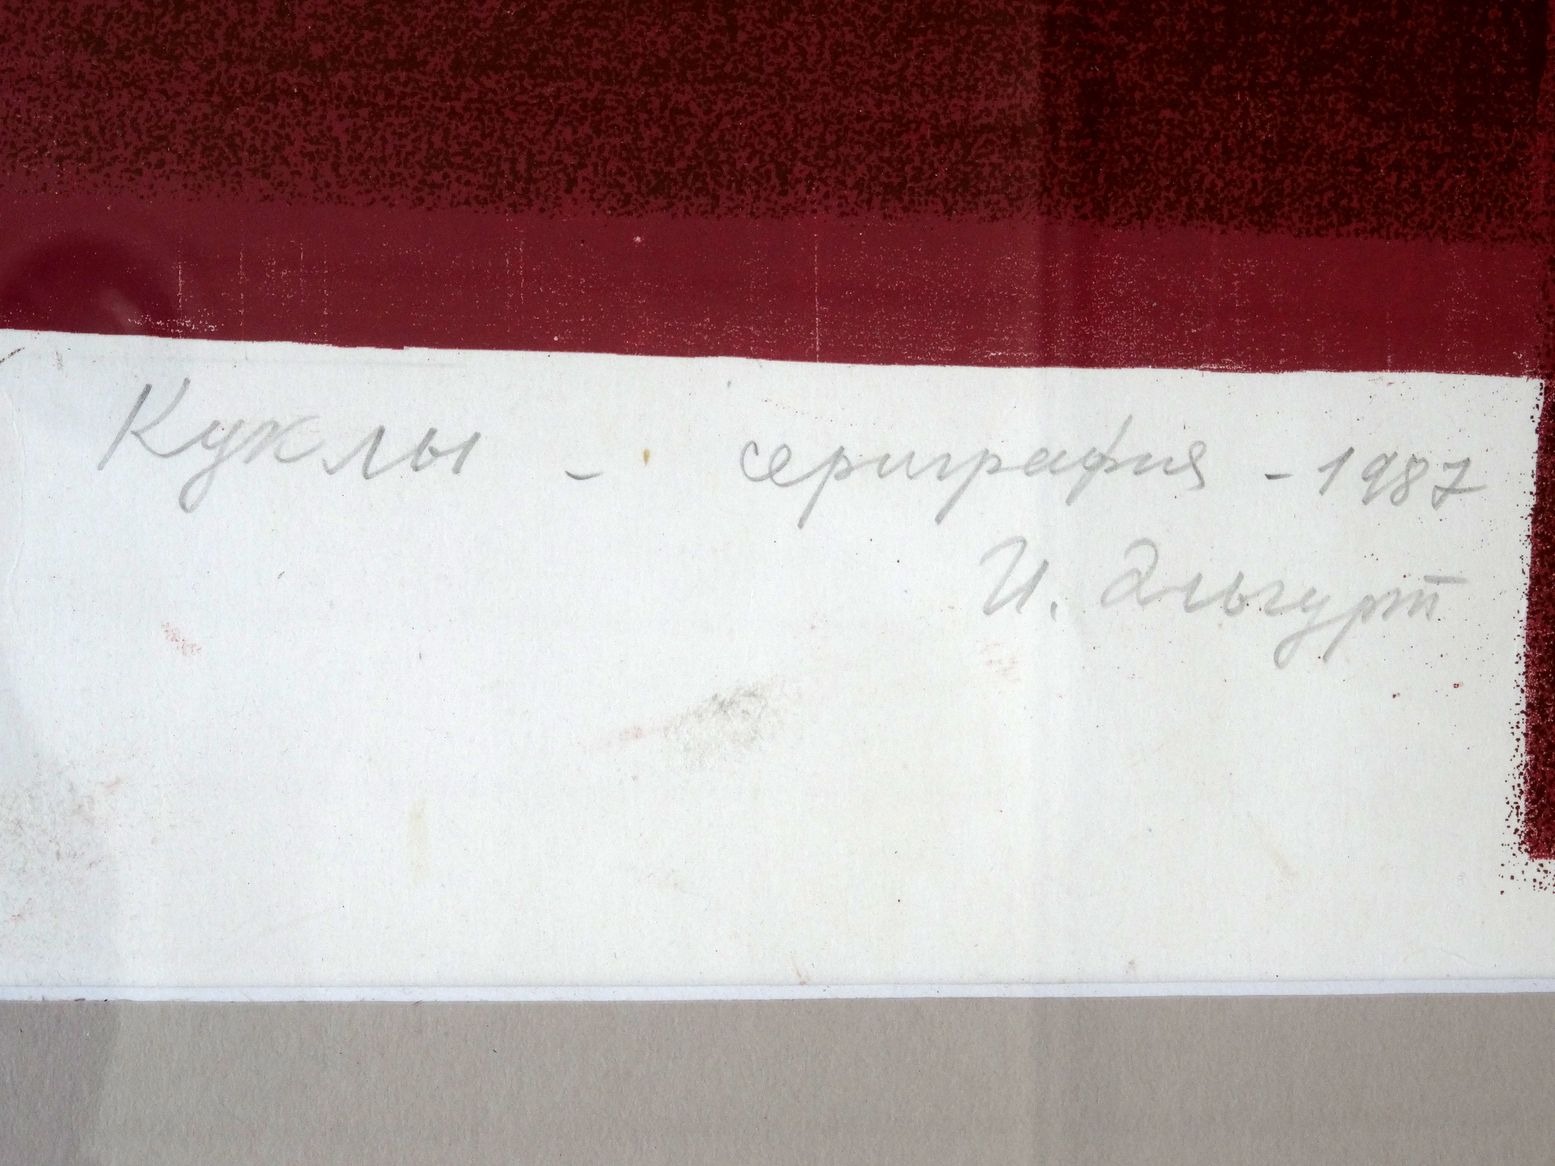 Куклы - сериграфия - 1987
И. Эльгурт